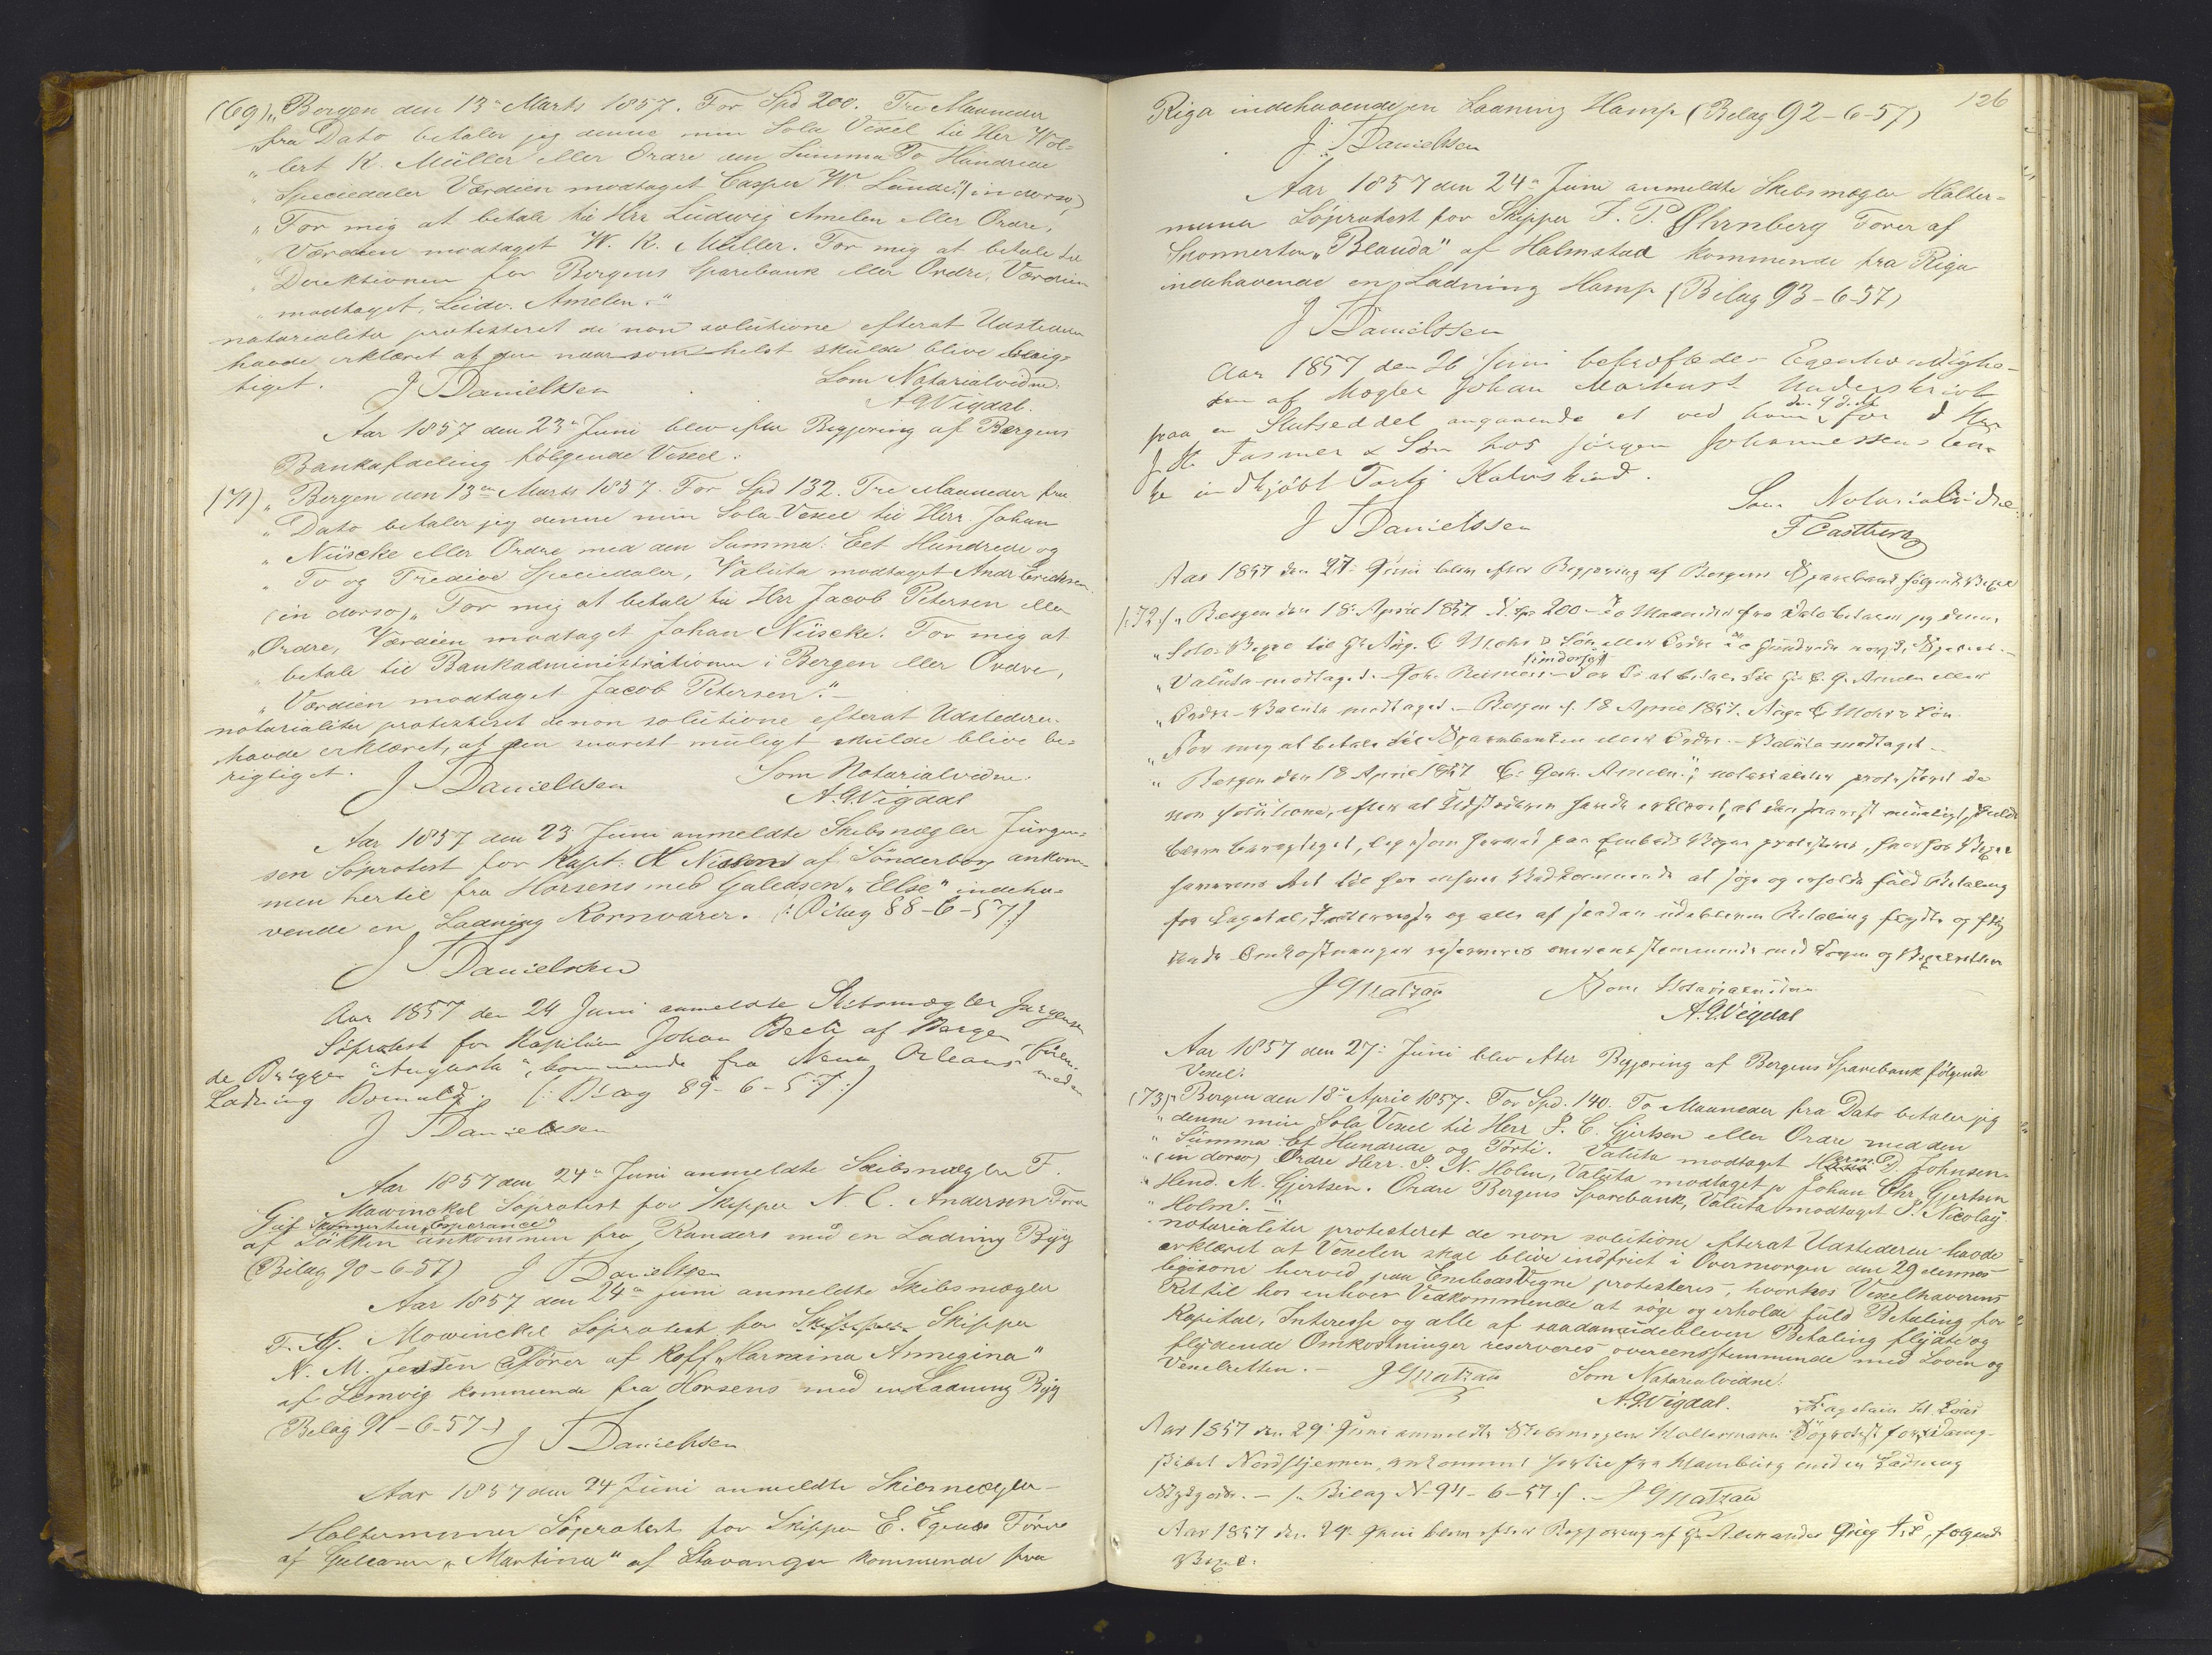 (69) „Bergen den 13de Marts 1857. For Spd 200. Tre Maaneder
„fra Dato betaler jeg denne min Sola Vexel til Her Wol=
„lert K. Müller eller Ordre den Summa To Hundrede
„Speciedaler Værdien modtaget Casper W. Lunde." (in dorso)
„For mig at betale til Hrr Ludwig Amelen eller Ordre,
„Værdien modtaget W. K. Müller. For mig at betale til
„Direktionen for Bergens Sparebank eller Ordre, Værdien
„modtaget, Ludv. Amelen."
notarialiter protesteret de non solutione efterat Udstederen
havde erklæret at den naarsomhelst skulde blive berig=
tiget.
J T Danielssen
Som Notarialvidne:
A G Vigdal.
Aar 1857 den 23de Juni blev efter Begjæring af Bergens
Bankafdeling følgende Vexel:
(71) „Bergen den 13de Marts 1857. For Spd 132. Tre Maaneder fra
„Dato betaler jeg denne min Sola-Vexel til Herr Johan
„Nüscke eller Ordre med den Summa: Eet Hundrede og
„To og Tredive Speciedaler, Valuta modtaget Andr Erichsen
(in dorso) „For mig at betale til Hrr Jacob Petersen eller
„Ordre, Værdien modtaget Johan Nüscke. For mig at
„betale til Bankadministrationen i Bergen eller Ordre,
„Værdien modtaget Jacob Petersen."
notarialiter protesteret de non solutione efterat Udstederen
havde erklæret, at den snarest muligt skulde blive be=
rigtiget.
J T Danielssen
Som Notarialvidne:
A. G. Vigdal
Aar 1857 den 23 Juni anmeldte Skibsmægler Jürgen=
sen Søprotest for Kapt. H Nissen af Sønderborg ankom=
men hertil fra Horsens med Galeasen „Ellse" indeha=
vende en Ladning Kornvarer. (: Bilag 88-6-57 :)
J T Danielssen
Aar 1857 den 24 Juni anmeldte Skibsmægler Jürgensen
Søprotest for Kapitain Johan Beck af Bergen føren=
de Briggen "Augusta", kommende fra New Orleans med en
Ladning Bomuld. (: Bilag 89-6-57 :)
J T Danielssen
Aar 1857 den 24de Juni anmeldte Skibsmægler F.
G. Mowinckel Søprotest for Skipper N. C. Andersen Fører
af Skonnerten „Esperance"
af Løkken ankommen fra Randers med en Ladning Byg
(Bilag 90-6-57) J T Danielssen
Aar 1857 den 24de Juni anmeldte Skibsmægler
F. G. Mowinckel Søprotest for Skipper
N. M. Jensen Fører af Koff „Harmina Annegina"
af Lemvig kommende fra Horsens med en Ladning Byg
(Bilag 91-6-57) J T Danielssen
Aar 1857 den 24 Juni anmeldte Skibsmægler
Haltermann Søprotest for Skipper E. Egenæs Fører
af Galeasen „Martina" af Stavanger kommende fra
126
Riga indehavende en Ladning Hamp (Bilag 92-6-57)
J. T Danielssen
Aar 1857 den 24de Juni anmeldte Skibsmægler Halter=
mann Søprotest for Skipper F. P. Öhrnberg Fører af
Skonnerten „Blauda" af Halmstad kommende fra Riga
indehavende en Ladning Hamp (Bilag 93-6-57)
J T Danielssen
Aar 1857 den 26 Juni bekræftedes Egenhændighe=
den af Mægler Johan Martens's Underskrivt
paa en Slutseddel angaaende et ved ham den 4 ds for d Hrr
J. H. Fasmer & Søn hos Jørgen Johannessens
indkjøbt Parti Kalvskind.
Som Notarialvidne:
J T Danielssen
F Eastberg
Aar 1857 den 27. Juni blev efter Begjæring af Bergens Sparebank følgende Vexel
(:72:) „Bergen den 18. April 1857 f. Sp 200 - To Maaneder fra Dato betaler jeg denne
„Sola-Vexel til Hr Aug. C Mohr & Søn eller Ordre To Hundrede norsk Species. -
(in dorso)
„Valuta modtaget. Joh. Reimers - For Os at betale til Hr C. G. Amelen eller
„Ordre - Valuta modtaget. - Bergen d. 18 April 1857. Aug C Mohr & Søn
„For mig at betale til Sparebanken eller Ordre. - Valuta modtaget -
„Bergen den 18 April 1857 C: Gerh. Amelen."; notarialiter protesteret de
non solutione, efter at Udstederen havde erklæret, at den snarest mueligt skulde
blive berigtiget, ligesom herved paa Embeds Vegne protesteres, hvorhos Vexel
haverens Ret til hos enhver Vedkommende at søge og erholde fuld Betaling
for Kapital, Interesse og alle af saadan udebleven Betaling flydte og fly
dende Omkostninger reserveres overensstemmende med Loven og Vexelretten
J Gnatzau
Som Notarialvidne
A. G. Vigdal
Aar 1857 den 27: Juni blev efter Begjæring af Bergens Sparebank følgende
Vexel:
(73) „Bergen den 18de April 1857. For Spd. 140. To Maaneder fra Dato betaler jeg
„denne min Sola Vexel til Herr J. C. Gjertsen eller Ordre med den
„Summa Et Hundrede og Førti. Valuta modtaget Herm. D. Johnsen.
„(in dorso) Ordre Herr. P. N. Holm, Valuta modtaget p Johan Chr. Gjertsen
„Hend. M. Gjertsen. Ordre Bergens Sparebank, Valuta modtaget P. Nicolay
„Holm." -
notarialiter protesteret de non solutione efterat Udstederen havde
erklæret at Vexelen skal blive indfriet i Overmorgen den 29 dennes
ligesom herved paa Embeds Vegne protesteres, hvorhos Vexelhaverens
Ret til hos enhver Vedkommende at søge og erholde fuld Betaling for
Kapital, Interesse og alle af saadan udebleven Betaling flydte og
flydende Omkostninger reserveres overeensstemmende med Loven og
Vexelretten. -
J Gnatzau
Som Notarialvidne:
A. G. Vigdal.
Aar 1857 den 29. Juni anmeldte Skibsmægler Haltermann Søprotest for Damp-
skibet Nordstjernen, ankommet hertil fra Hamburg med en Ladning
Stykgods. - (: Bilag N-94-6-57 :). - J Gnatzau
Aar 1857 den 29. Juni blev efter Begjæring af Hr Alexander Grieg følgende
Vexel: